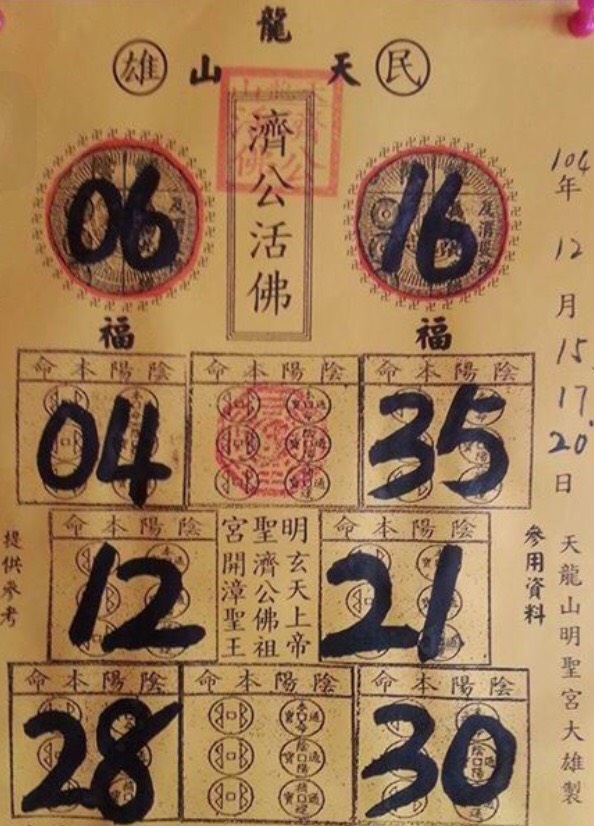 龍
雄 山 天 民
濟公活佛
06 16
福 福
104年12月15.17.20日
命本陽陰 命本陽陰 命本陽陰
04 35
命本陽陰 命本陽陰
12 21
明玄天上帝
聖濟公佛祖
宮開漳聖王
提供參考
參用資料
天龍山明聖宮大雄製
命本陽陰 命本陽陰 命本陽陰
28 30